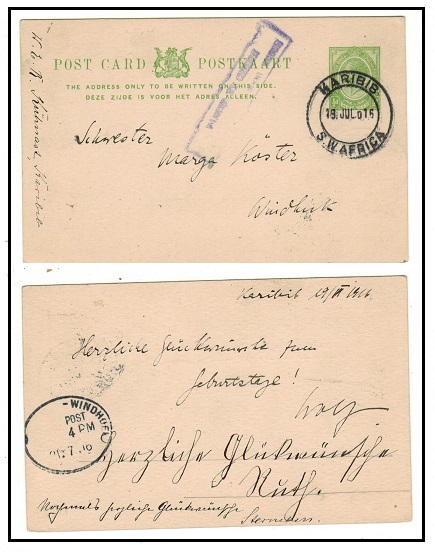 POST CARD POSTKAART
THE ADDRESS ONLY TO BE WRITTEN ON THIS SIDE.
DEZE ZIJDE IS VOOR HET ADRES ALLEEN.
KARIBIB
18 JUL 16
S.W.AFRICA
Karibib
Schwester
Marga Köster
Windhuk
Karibib 19/ 1916.
Herzliche Glückwünsche zum
Geburtstage!
WINDHOEK
POST
4 PM
Herzliche Glükwünsche
Ruth.
Nochmals herzliche Glückwünsche